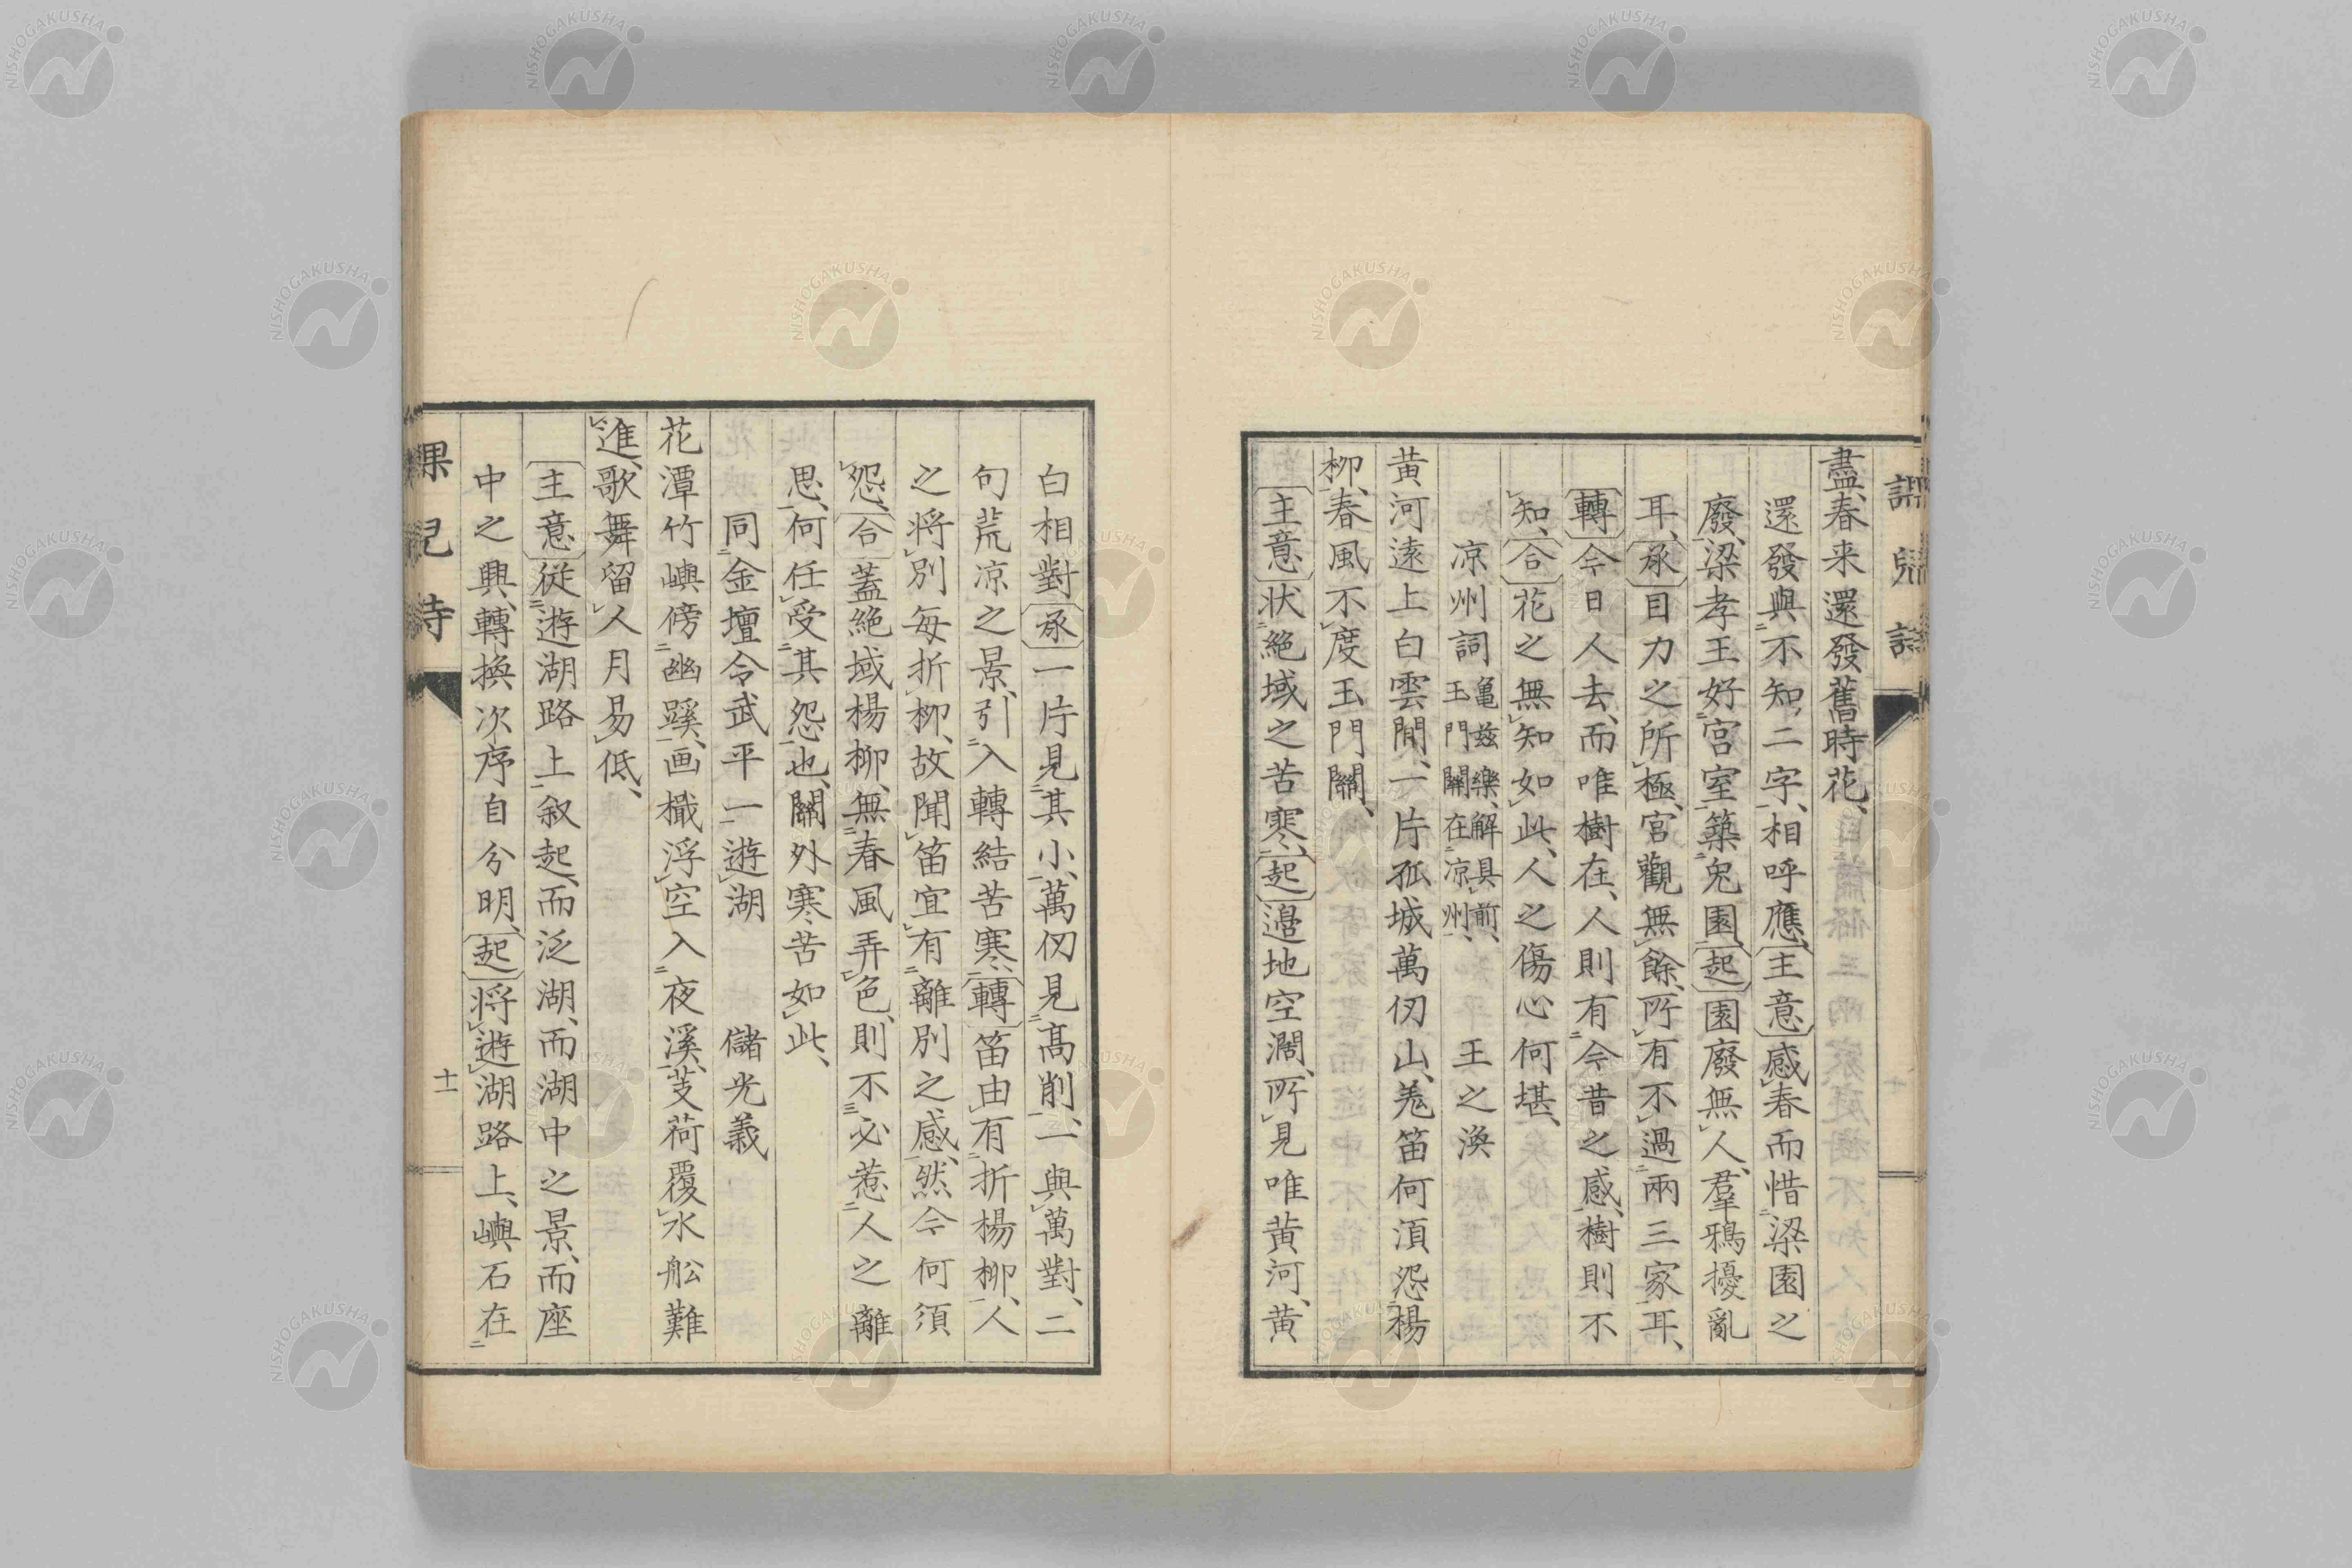 課兒詩
盡、春来還發舊時花、
還發與不知、二字、相呼應、主意感春而惜梁園之
廢、梁孝王好宮室築兎園、起園廢無人、羣鴉擾亂
耳、承目力之所極、宮觀無餘、所有不過兩三家耳、
轉今日人去、而唯樹在、人則有今昔之感、樹則不
知、合花之無知如此、人之傷心何堪、
凉州詞 亀兹樂、解具前、玉門關在凉州、 王之渙
黄河遠上白雲間、一片孤城萬仞山、羗笛何湏怨楊
柳、春風不度玉門關、
主意状絶域之苦寒、起邉地空濶、所見唯黄河、黄
白相對承一片見其小、萬仞見髙削、一與萬對、二
句荒凉之景、引入轉結苦寒、轉笛由有折楊柳、人
之将別毎折柳、故聞笛宜有離別之感、然今何須
怨、合蓋絶域楊柳、無春風弄色、則不必惹人之離
思、何任受其怨也、關外寒苦如此、
同金壇令武平一遊湖 儲光義
花潭竹嶼傍幽蹊、画檝浮空入夜溪、芰荷覆水舩難
進、歌舞留人月易低、
主意従遊湖路上叙起、而泛湖、而湖中之景、而座
中之興、轉換次序自分明、起将遊湖路上、嶼石在
課兒詩
十一
NISHOGAKUSHA